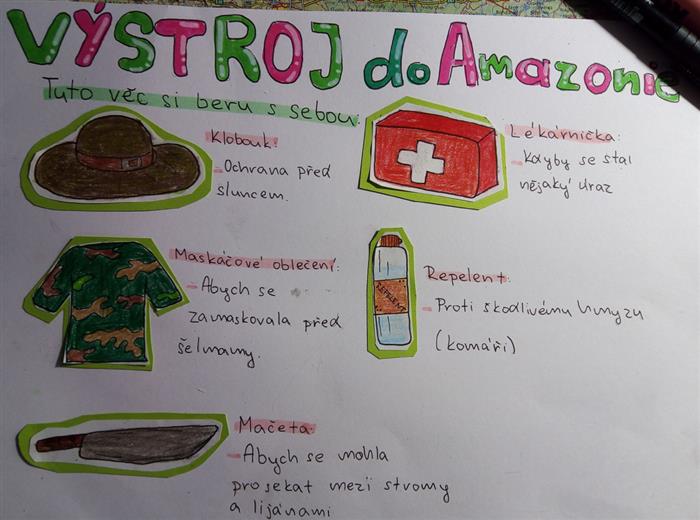 VÝSTROJ do Amazonie
Tuto věc si beru s sebou:
Klobouk:
- Ochrana před
sluncem.
Lékárnička:
- Kdyby se stal
nějaký úraz
Maskáčové oblečení:
- Abych se
zamaskovala před
šelmamy.
REPELENT
Repelent:
- Proti škodlivému hmyzu
(komáři)
Mačeta:
- Abych se mohla
prosekat mezi stromy
a lijánami